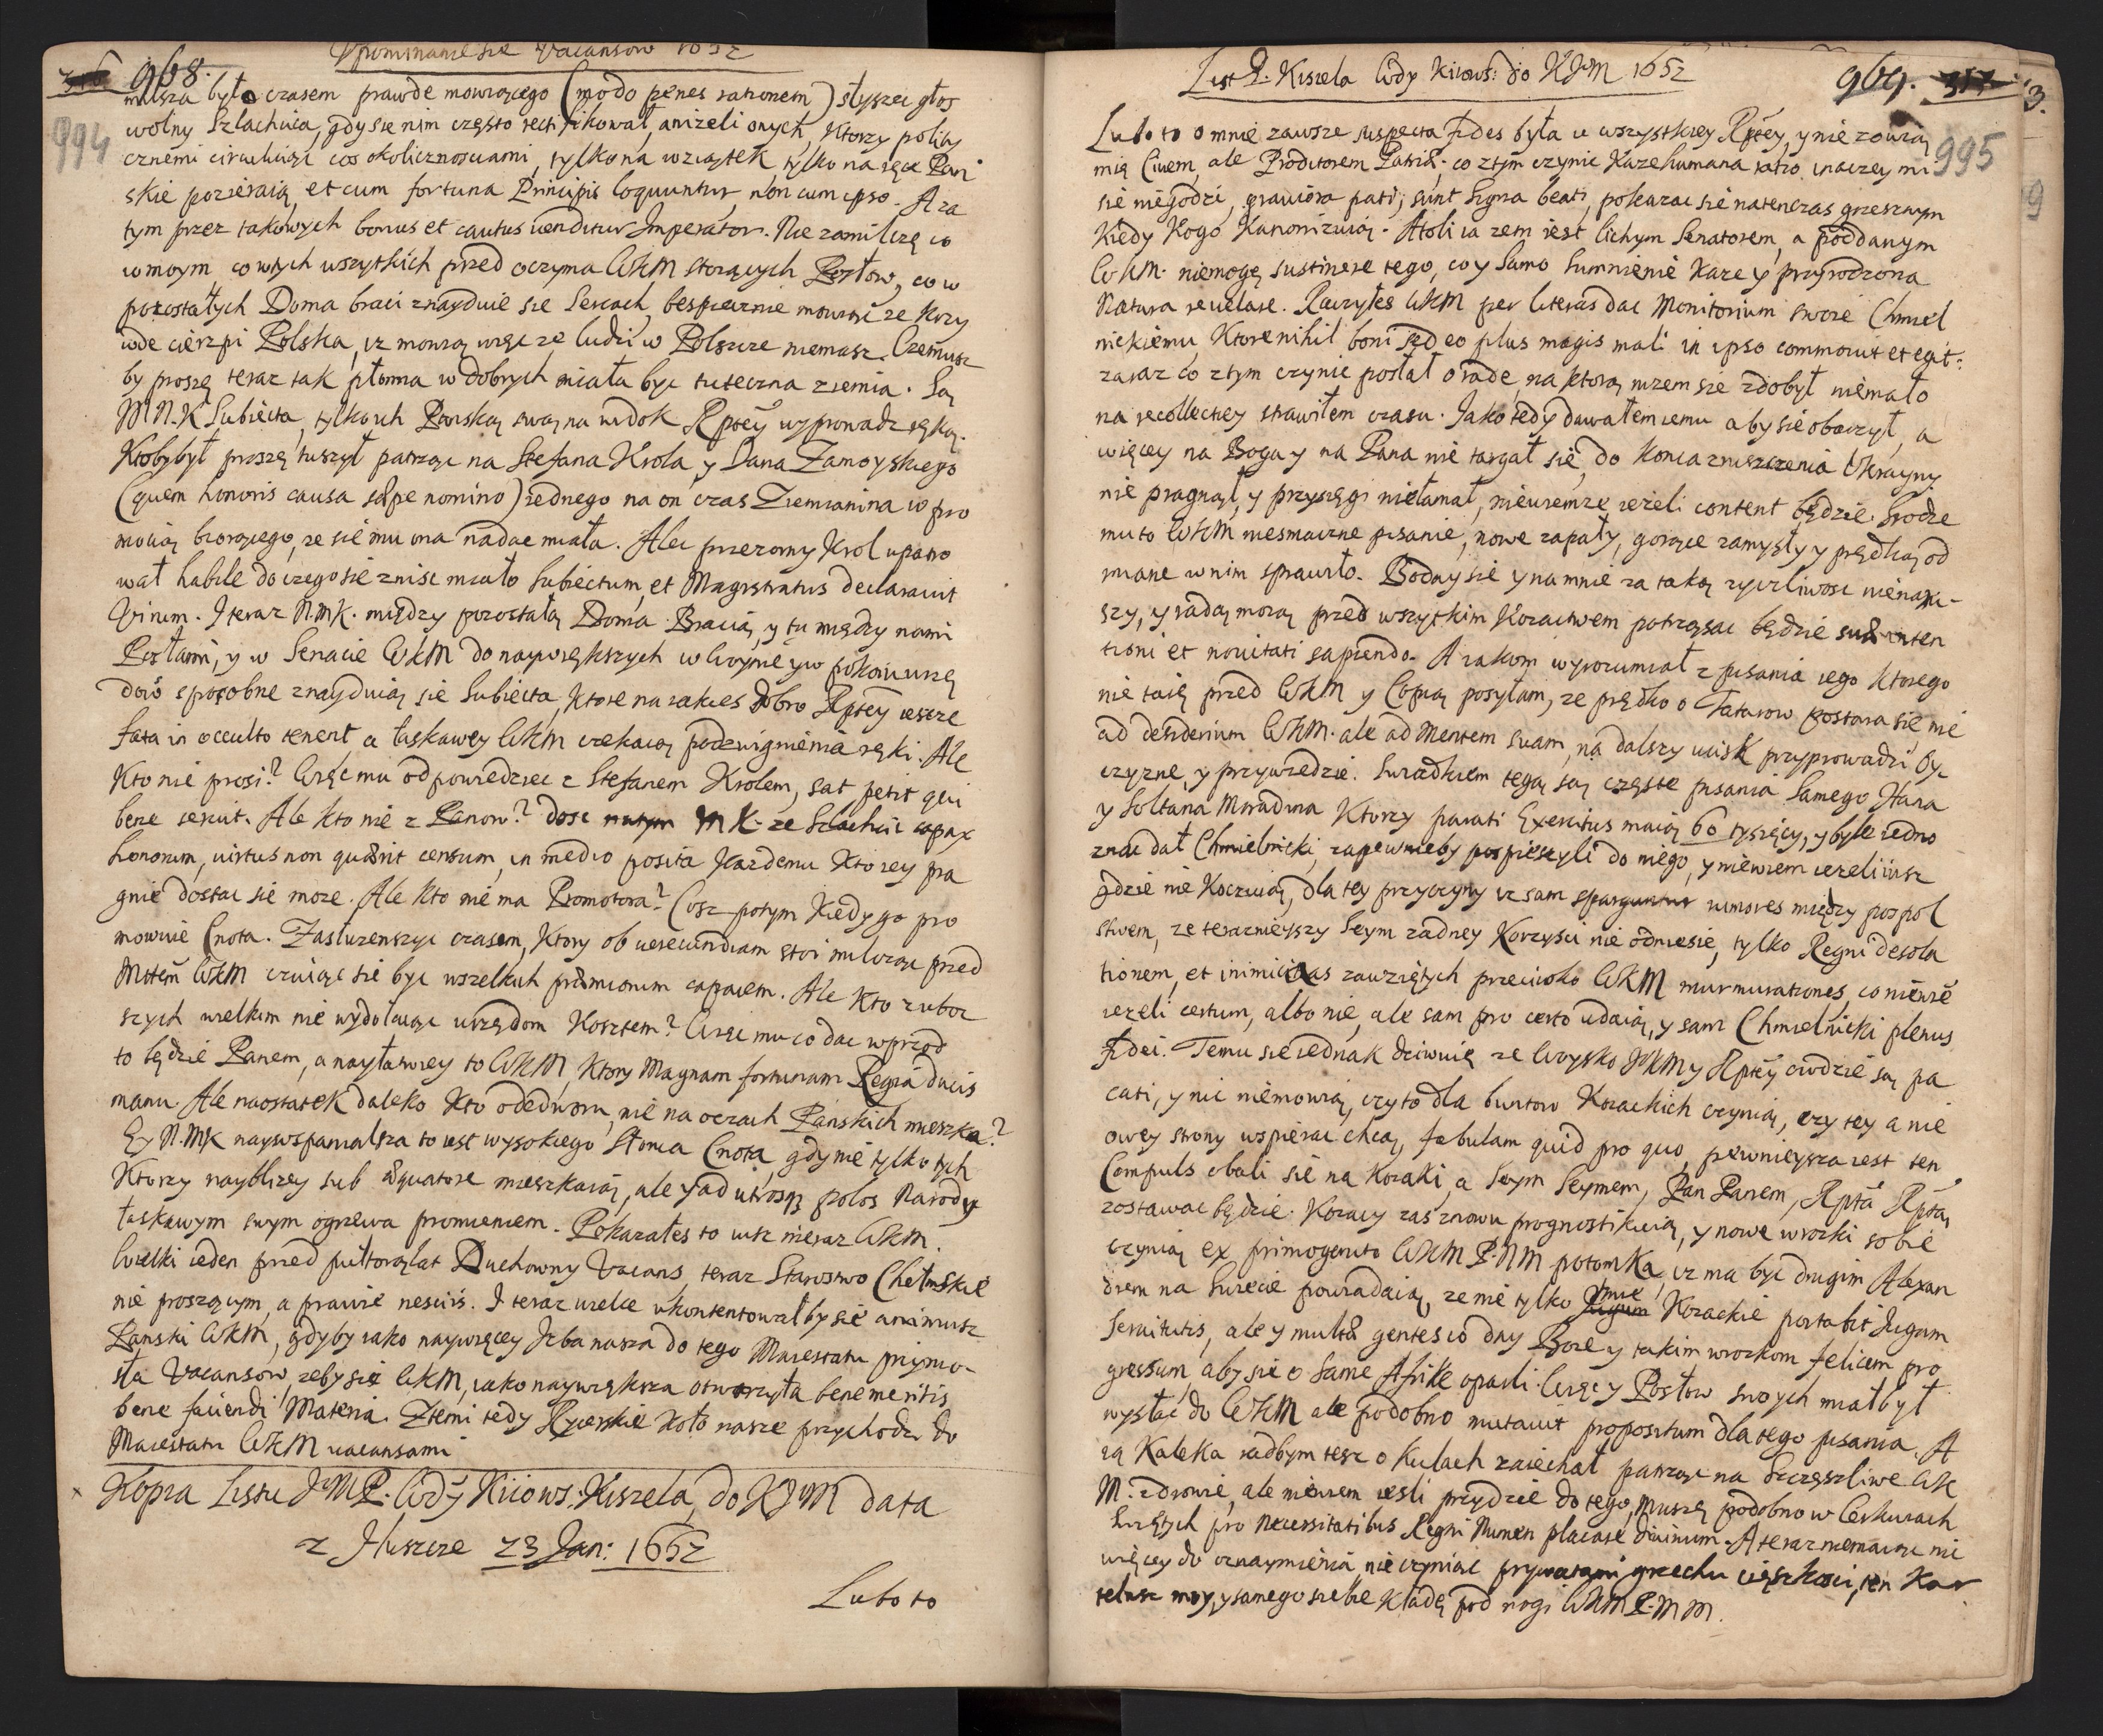 Upominanie się Vacansow 1652
316 968.
994
musza było czasem prawdę mowiącego (modo penes rationem) słyszec głos
wolny Szlachcica, gdy sie nim często rectifikował, anizeli onych, ktorzy polity
cznemi circuluiąc cos okolicznosciami, tylko na wziątek, tylko na ręce Pan
skie pozieraią, et cum fortuna Principis loquuntur, non cum ipso. A za
tym przez takowych bonus et cautus venditur Imperator. Nie zamilczę co
w moym, co w tych wszytkich przed oczyma WKM stoiących Posłow, co w
pozostałych Doma braci znayduie sie Sercach, bespiecznie mowiąc ze krzy
wdę cierzpi Polska, iz mowią więc ze ludzi w Polszcze niemasz. Czemusz
by proszę teraz tak płonna w dobrych miała byc tuteczna ziemia. Są
M N. K Subiecta, tylko ich Panską swą na widok Rptey wyprowadz ręką.
Ktoby był proszę tuszył patrząc na Stefana Krola, y Jana Zamoyskiego
(quem honoris causa sæpe nomino) iednego na on czas Ziemianina w pro
mocią biorącego, ze sie mu ona nadac miała. Alec przezorny Krol upatro
wał habile do czego sie zniesc miało Subiectum, et Magistratus declaravit
Virum. I teraz N. MK. między pozostałą Doma Bracią, y tu między nami
Posłami, y w Senacie WKM do naywiększych w Woynie y w pokoiu urzę
dow sposobne znayduią sie Subiecta, ktore na iakies dobro Rptey ieszcze
fata in occulto tenent, a łaskawey WKM czekaią podzwignienia ręki. Ale
kto nie prosi? Więc mu odpowiedziec z Stefanem Krolem, sat petit qui
bene servit. Ale kto nie z Panow? dosc M K. ze Szlachcic capax
honorum, virtus non quærit censum, in medio posita kazdemu kto iey pra
gnie dostac sie moze. Ale kto nie ma Promotora? Cosz potym kiedy go pro
mowuie Cnota. Zasłuzenszyc czasem, ktory ob verecundiam stoi milcząc przed
Mttem WKM czuiąc sie byc wszelkich præmiorum capacem. Ale kto z ubosz
szych wielkim nie wydołaiąc urzędom kosztem? Więc mu co dac wprzod
to będzie Panem, a nayłatwiey to WKM, ktory Magnam fortunam Regia ducis
manu. Ale naostatek daleko kto ode dworu, nie na oczach Panskich mieszka?
Ey N. MK nayswspanialsza to iest wysokiego Słonca Cnota, gdy nie tylko tych
ktorzy nayblizey sub æquatore mieszkaią, ale y ad utrosque polos Narody
łaskawym swym ogrzewa promieniem. Pokazałes to iusz nieraz WKM.
Wielki ieden przed pułtorą lat Duchowny Vacans, teraz Starostwo Chełmskie
nie proszącym, a prawie nesciis. I teraz wielce ukontentowałby sie animusz
Panski WKM, gdyby iako naywięcey Izba nasza do tego Maiestatu przynio-
sła Vacansow, zeby sie WKM, iako naywiększa otworzyła bene meritis
bene faciendi Materia. Ztemi tedy Rycerskie Koło nasze przychodzi do
Maiestatu WKM vacansami
Kopia Listu JeMP. Wdy Kiiows: Kiszela, do KJeM data
z Huszcze 23 Jan: 1652
Lubo to
List P. Kisiela Wdy Kiiows: do KJeM 1652
969. 317
3.
995
9
Lubo to o mnie zawsze suspecta fides była u wszystkiey Rptey, y nie zowią
mię Civem, ale Proditorem Patriæ, co z tym czynic kaze humana ratio inaczey mi
się niegodzi, graviora pati, sunt signa beati, pokazac sie natenczas grzesznym
kiedy kogo kanonizuią. Atoli ia zem iest lichym Senatorem, a poddanym
WKM. niemogę sustinere tego, co y samo sumnienie kaze y przyrodzona
Natura revelare. Raczyłes WKM per literas dac Monitorium swoie Chmiel
nickiemu, ktore nihil boni sed eo plus magis mali in ipso commovit et egit:
zaraz co z tym czynic posłał o radę, na ktorą nizem sie zdobył niemało
na recollectiey strawiłem czasu. Jako tedy dawałem iemu aby sie obaczył, a
więcey na Boga y na Pana nie targał się, do konca zniszczenia Ukrainy
nie pragnął, y przysięgi nie łamał, niewiem ze iezeli content będzie. Srodze
mu to WKM niesmaczne pisanie, nowe zapały, gorące zamysły y prędką od
mianę w nim sprawiło. Boday sie y na mnie za taką zyczliwosc nie na...-
szy, y radą moią przed wszytkim Kozactwem potrząsac będzie suæ inten
tioni et novitati sapiendo. A iakom wyrozumiał z pisania iego ktorego
nie taię przed WKM y Copią posyłam, ze prędko o Tatarow postara sie nie
ad desiderium WKM. ale ad Mentem suam, na dalszy ucisk przyprowadzi Oy
czyznę, y przywiedzie. Swiadkiem tego są częste pisania samego Hana
y Sołtana Muradina ktorzy parati Exercitus maią 60 tysięcy, y byle iedno
znac dał Chmielnicki, zapewneby pospieszyli do niego, y niewiem iezeli iusz
gdzie nie koczuią, dla tey przyczyny iz sam sparguntur rumores między pospol
stwem, ze terazniejszy Seym zadney korzysci nie odniesie, tylko Regni desola
tionem, et inimicitias zawziętych przeciwko WKM murmurationes, co niewie
iezeli certum, albo nie, ale sam pro certo udaią, y sam Chmielnicki plenus
fidei. Temu sie iednak dziwuię ze Woysko JKM y Rptey owdzie są pa
cati, y nic niemowią, czy to dla buntow Kozackich czynią, czy tey a nie
owey strony wspierac chcą, fabulam quid pro quo, pewnieysza iest ten
Compuls obali sie na Kozaki, a Seym Seymem, Pan Panem, Rpta Rptą
zostawac będzie. Kozacy zas znowu prognostikuią, y nowe wrozki sobie
czynią ex primogenito WKM P. NM potomka, iz ma byc drugim Alexan
drem na Swiecie powiadaią, ze nie tylko Jugum Kozackie portabit Jugum
Servitutis, ale y multæ gentes co day Boze y takim wrozkom felicem pro
gressum, aby sie o same Afrikę oparli. Więc y Posłow swoych miał był
wysłac do WKM ale podobno mutavit propositum dla tego pisania. A
ia Kaleka radbym tesz o kulach zaiechał patrząc na Szczęszliwe WK
M. zdrowie, ale niewiem iesli przydzie do tego, muszę podobno w Cerkwiach
Swiętych pro Necessitatibus Regni Numen placare divinum. A teraz niemaiąc nic
więcey do oznaymienia, nie czyniąc prywatami grzechu cięszkosci, ten Kar
telusz moy, y samego siebie kładę pod nogi WKM P. M M.